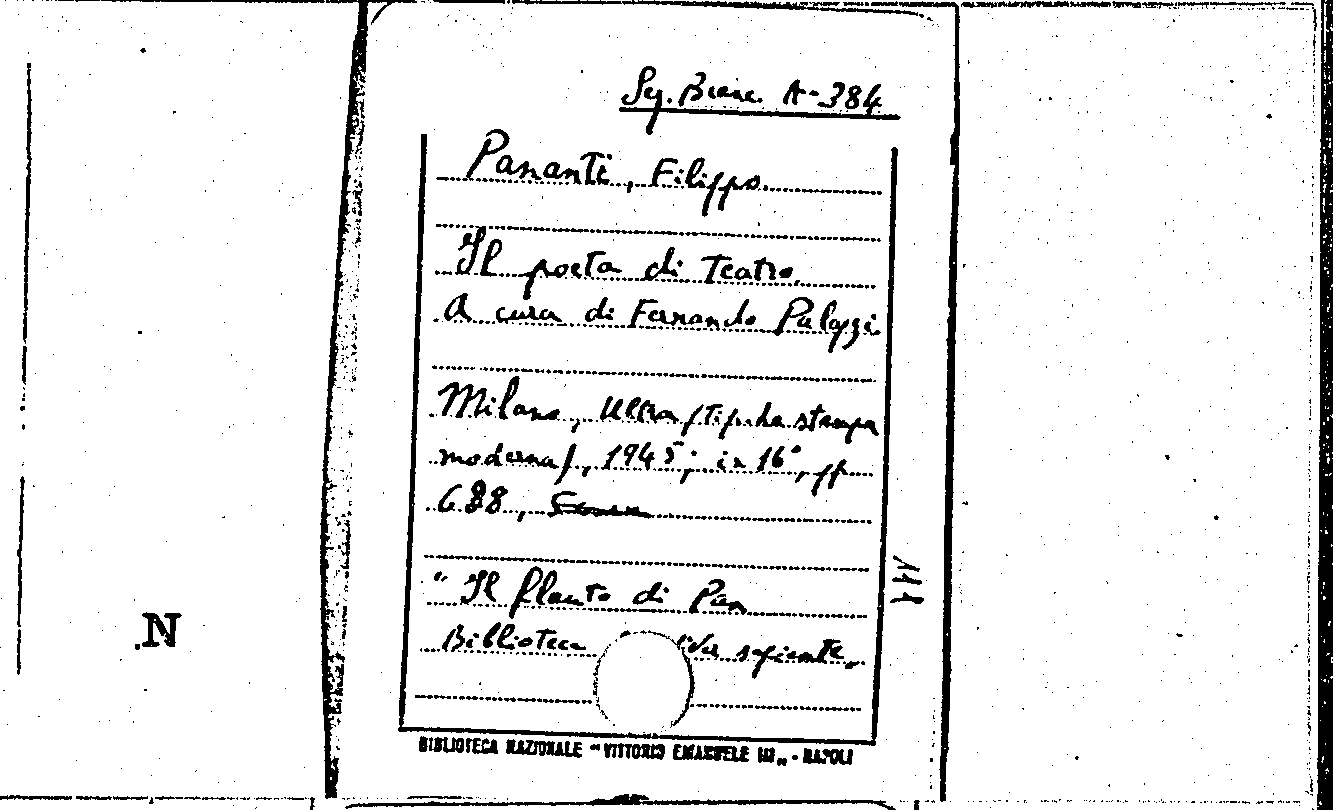 Seg. Branc. A-384
Pananti, Filippo.
Il poeta di Teatro.
A cura di Fernando Palazzi.
Milano, Ultra (Tip. La stampa
moderna), 1945; in 16°, pp
688,
"Il flauto di Pan
Biblioteca sapiente„
N
BIBLIOTECA NAZIONALE "VITTORIO EMANUELE III„ - NAPOLI